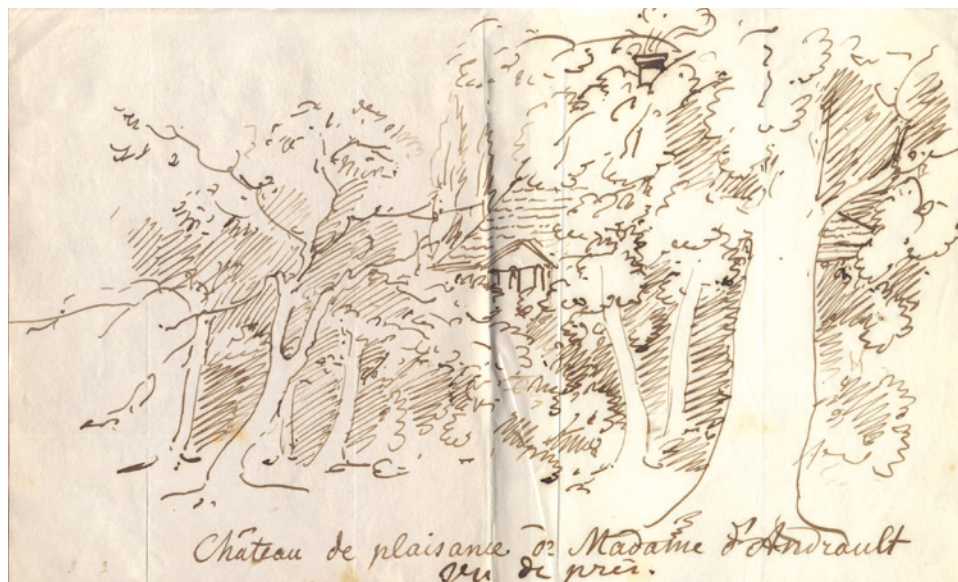 Château de plaisance de Madame d'Andrault
vu de près.